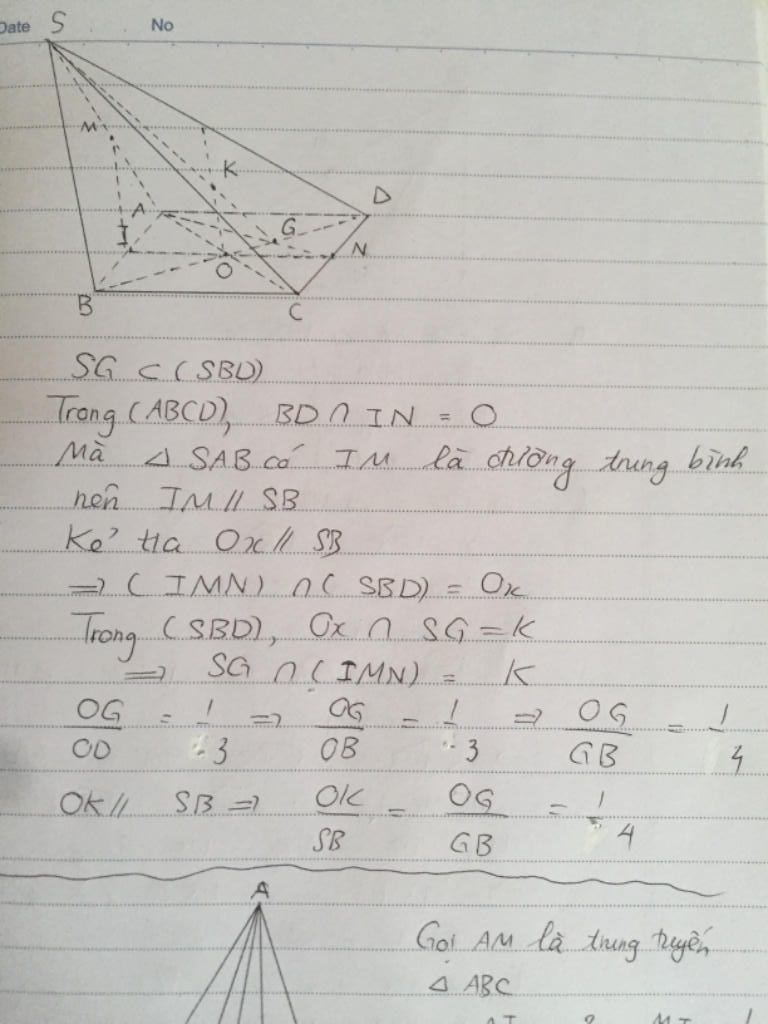 Date S No
M
K
D
A
I
G
N
O
B
C
SG ⊂ (SBD)
Trong (ABCD), BD ∩ IN = O
Mà △ SAB có IM là đường trung bình
nên IM // SB
Kẻ tia Ox // SB
⇒ (IMN) ∩ (SBD) = Ox
Trong (SBD), Ox ∩ SG = K
⇒ SG ∩ (IMN) = K
OG/OD = 1/3 ⇒ OG/OB = 1/3 ⇒ OG/GB = 1/4
OK // SB ⇒ OK/SB = OG/GB = 1/4
A
Gọi AM là trung tuyến
△ ABC